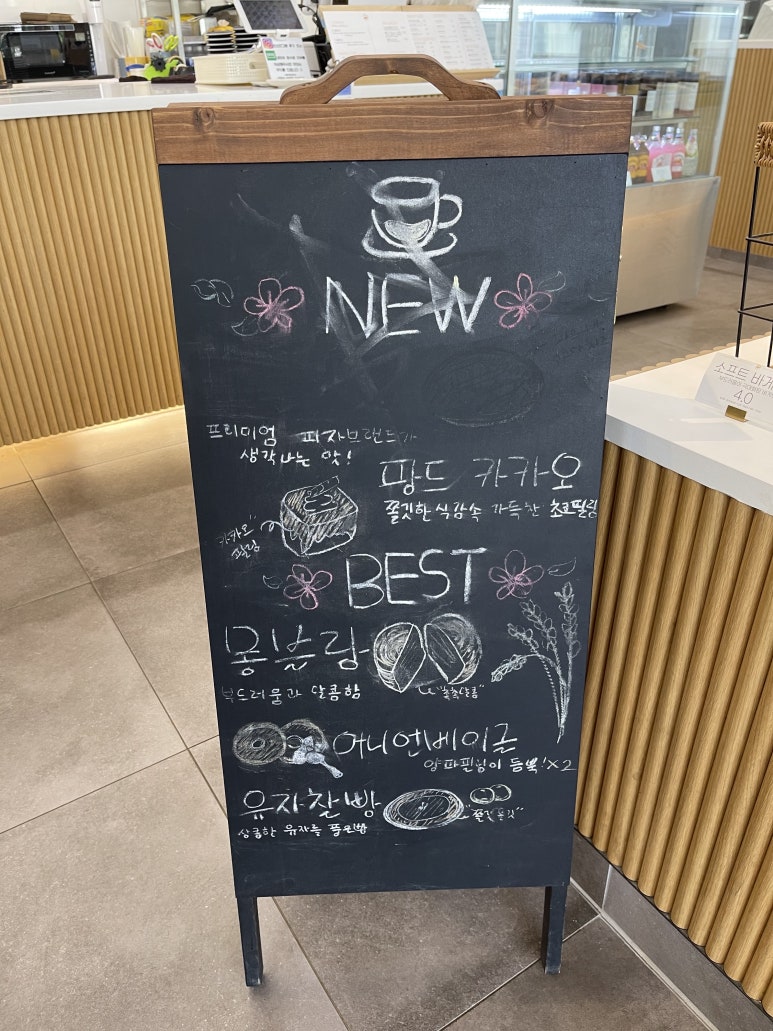 NEW
프리미엄 피자브랜드가
생각나는 맛!
팡드 카카오
쫄깃한 식감속 가득찬 초코필링
카카오"
필링
BEST
몽블랑
부드러움과 달콤함
"촉촉달콤"
어니언베이글
양파필링이 듬뿍!X2
유자찰빵
상큼한 유자를 품은빵
"쫄깃쫄깃"
소프트 바게
4.0